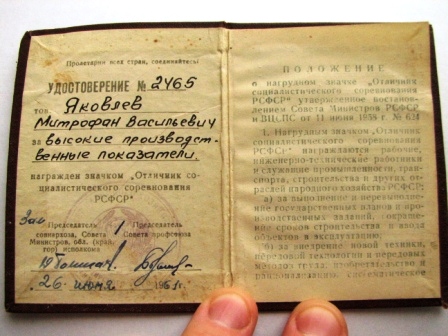 Пролетарии всех стран, соединяйтесь!
УДОСТОВЕРЕНИЕ № 2465
тов. Яковлев
Митрофан Васильевич
за высокие производст-
венные показатели.
награжден значком "Отличник со-
циалистического соревнования
РСФСР"
Председатель Председатель
совнархоза, Совета Совета профсоюза
Министров, обл. (край,
гор) исполкома
26 июня 1961г.
ПОЛОЖЕНИЕ
о нагрудном значке „Отличник
социалистического соревнования
РСФСР" утвержденное постанов-
лением Совета Министров РСФСР
и ВЦСПС от 11 июня 1958 г. № 621
1. Нагрудным значком „Отличник
социалистического соревнования
РСФСР" награждаются рабочие,
инженерно-технические работники
и служащие промышленности, тран-
спорта, строительства и других от-
раслей народного хозяйства РСФСР:
а) за выполнение и перевыполне-
ние государственных планов и про-
изводственных заданий, сокраще-
ние сроков строительства и ввода
объектов в эксплуатацию;
б) за внедрение новой техники,
передовой технологии и передовых
методов труда, изобретательство и
рационализацию, систематическое